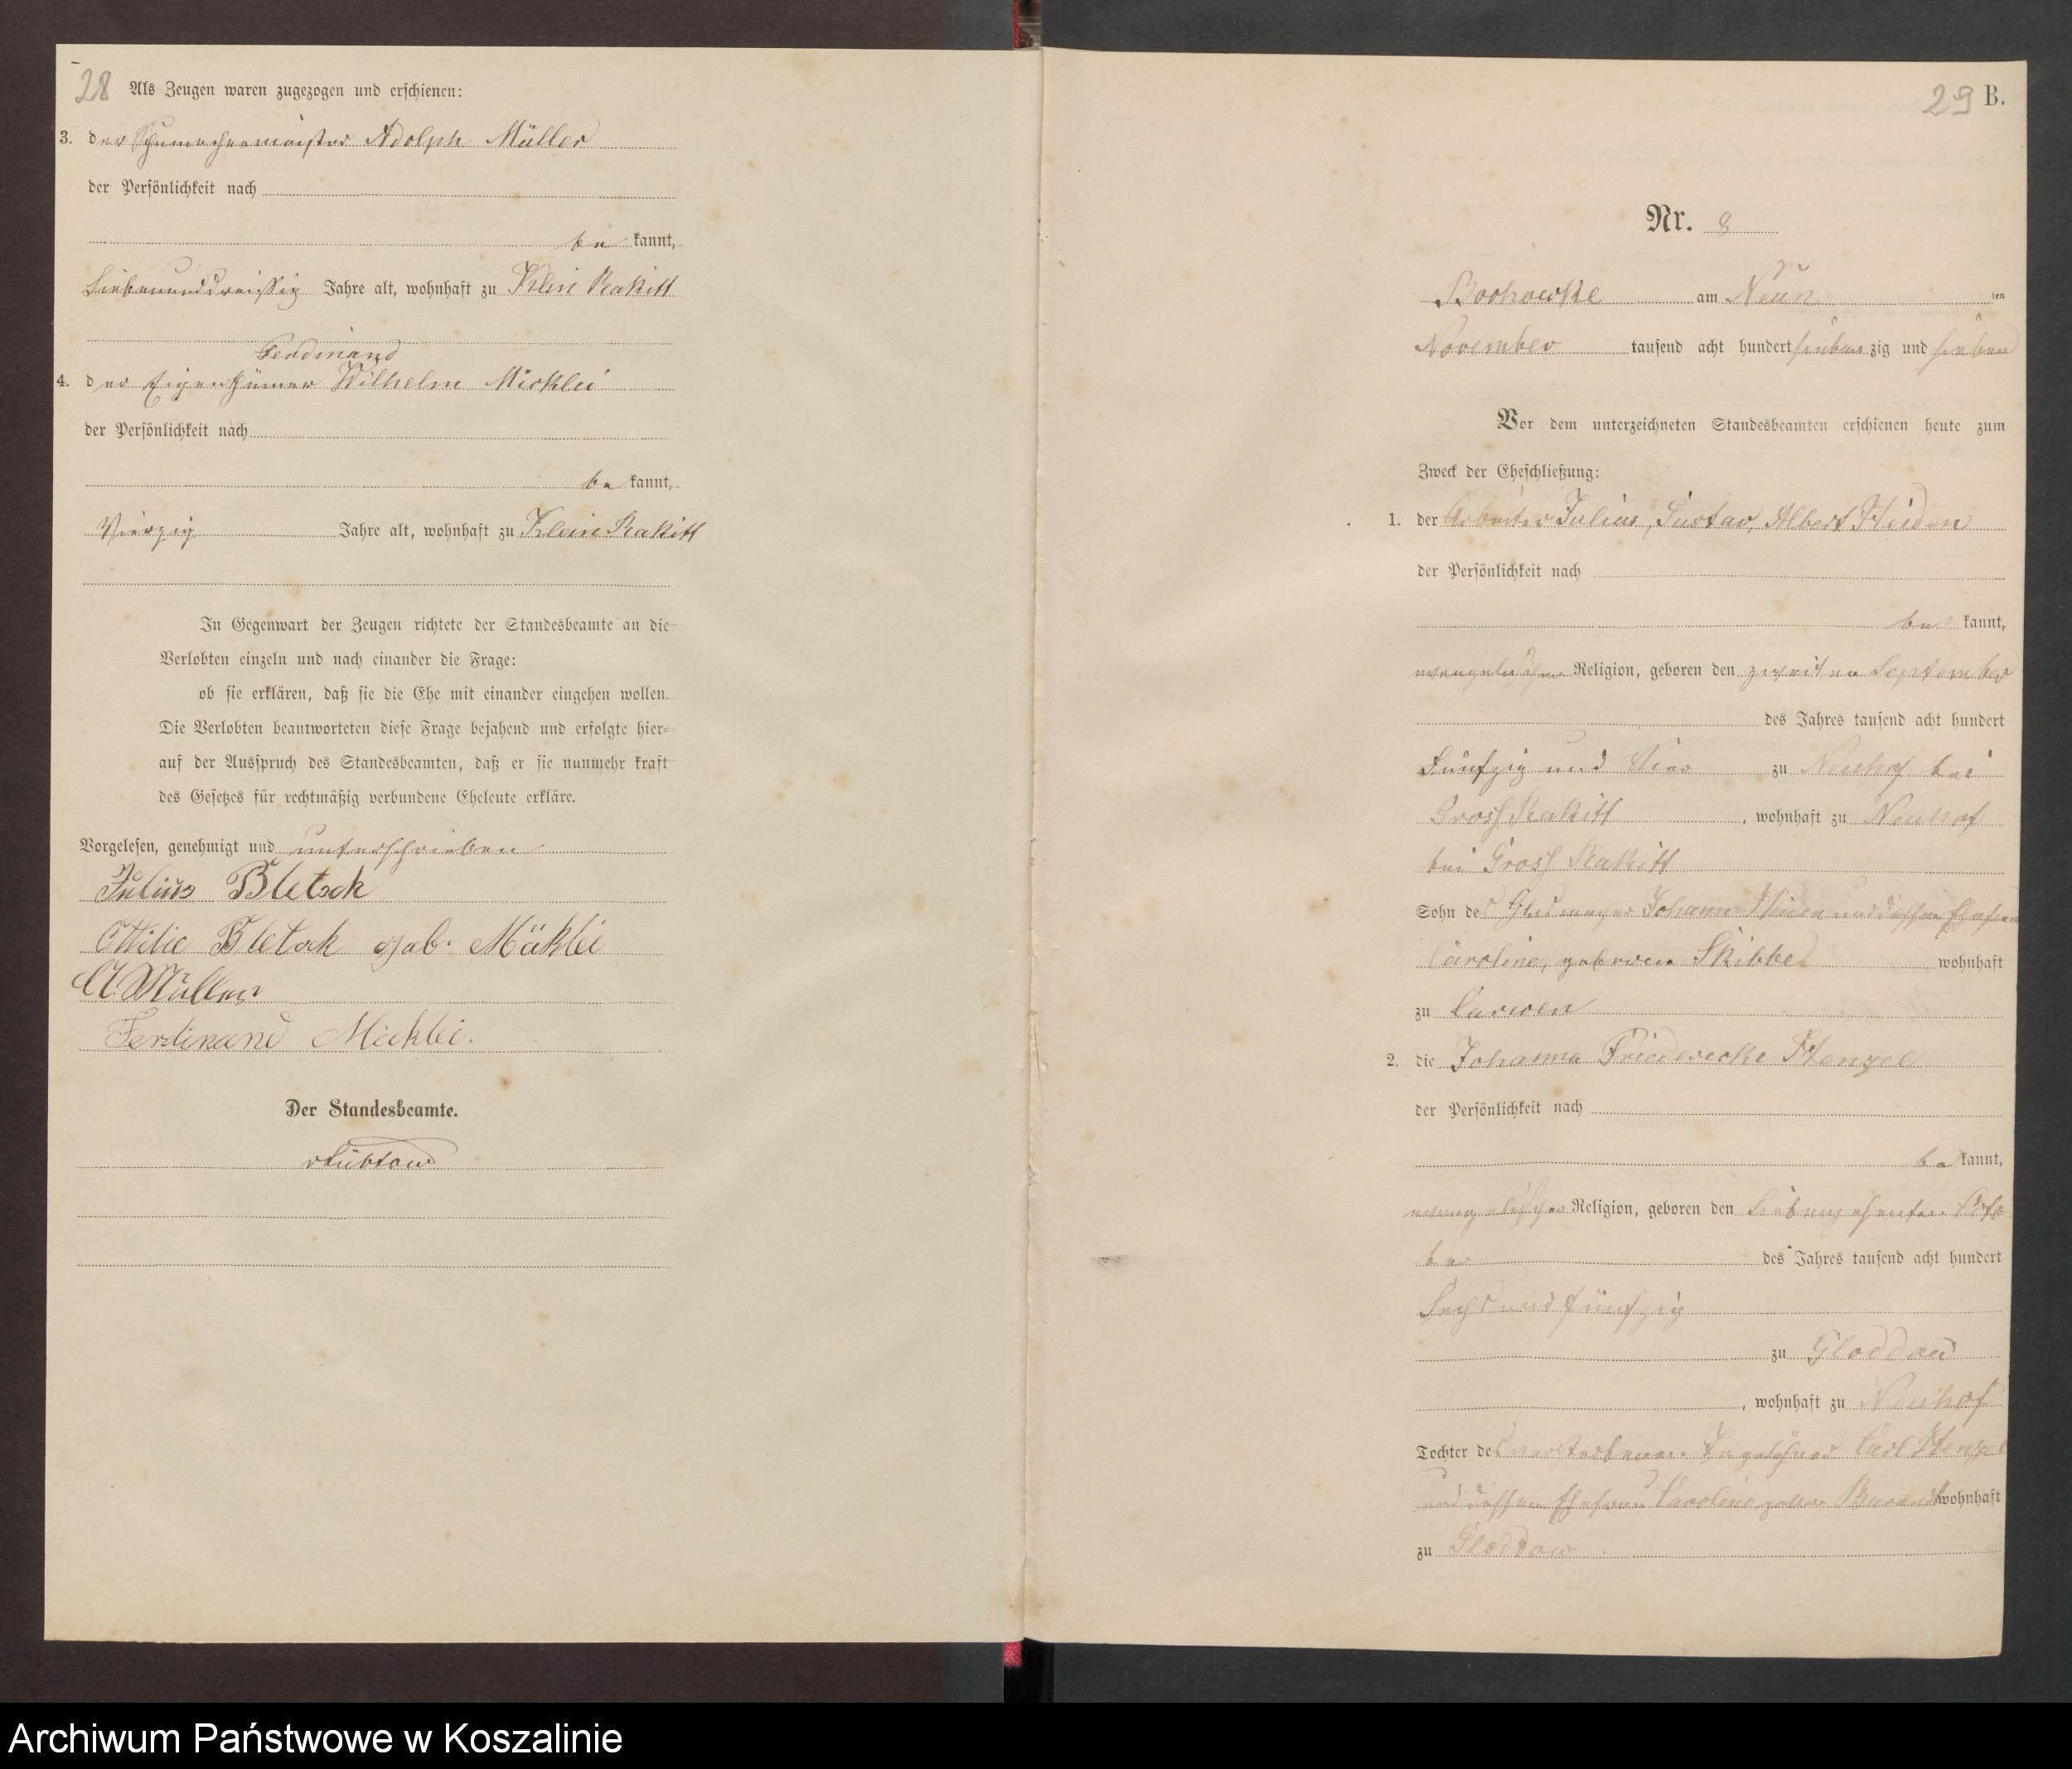 28 Als Zeugen waren zugezogen und erschienen:
3. der Schumachermeister Adolph Müller
der Persönlichkeit nach
be kannt,
Siebenunddreissig Jahre alt, wohnhaft zu Klein Rakitt
Ferdinand
4. der Eigenthümer Wilhelm Micklei
der Persönlichkeit nach
be kannt,
Vierzig Jahre alt, wohnhaft zu Klein Rakitt
In Gegenwart der Zeugen richtete der Standesbeamte an die
Verlobten einzeln und nach einander die Frage:
ob sie erklären, daß sie die Ehe mit einander eingehen wollen.
Die Verlobten beantworteten diese Frage bejahend und erfolgte hier-
auf der Ausspruch des Standesbeamten, daß er sie nunmehr kraft
des Gesetzes für rechtmäßig verbundene Eheleute erkläre.
Vorgelesen, genehmigt und unterschrieben
Julius Bletsck
Ottilie Bletsck geb. Mäklei
A Müller
Ferdinand Micklei.
Der Standesbeamte.
29 B.
Nr. 8
Bochowke am Neun ten
November tausend acht hundert sieben zig und sieben
Vor dem unterzeichneten Standesbeamten erschienen heute zum
Zweck der Eheschließung:
1. der Arbeiter Julius, Gustav, Albert Heiden
der Persönlichkeit nach
be kannt,
evangelischer Religion, geboren den zweiten September
des Jahres tausend acht hundert
Fünfzig und Vier zu Neuhof bei
Gross Rakitt, wohnhaft zu Neuhof
bei Gross Rakitt
Sohn des Glasmacher Johann Heiden und dessen Ehefrau
Caroline, geborene Skibbe wohnhaft
zu Carwen
2. die Johanna Friedericke Stenzel
der Persönlichkeit nach
be kannt,
evangelischer Religion, geboren den Siebenzehnten Octo
ber des Jahres tausend acht hundert
Sechs und fünfzig
zu Gloddau
, wohnhaft zu Neuhof
Tochter des verstorbenen Tagelöhner Carl Stenzel
und dessen Ehefrau Caroline gebor. wohnhaft
zu Gloddow
Archiwum Państwowe w Koszalinie